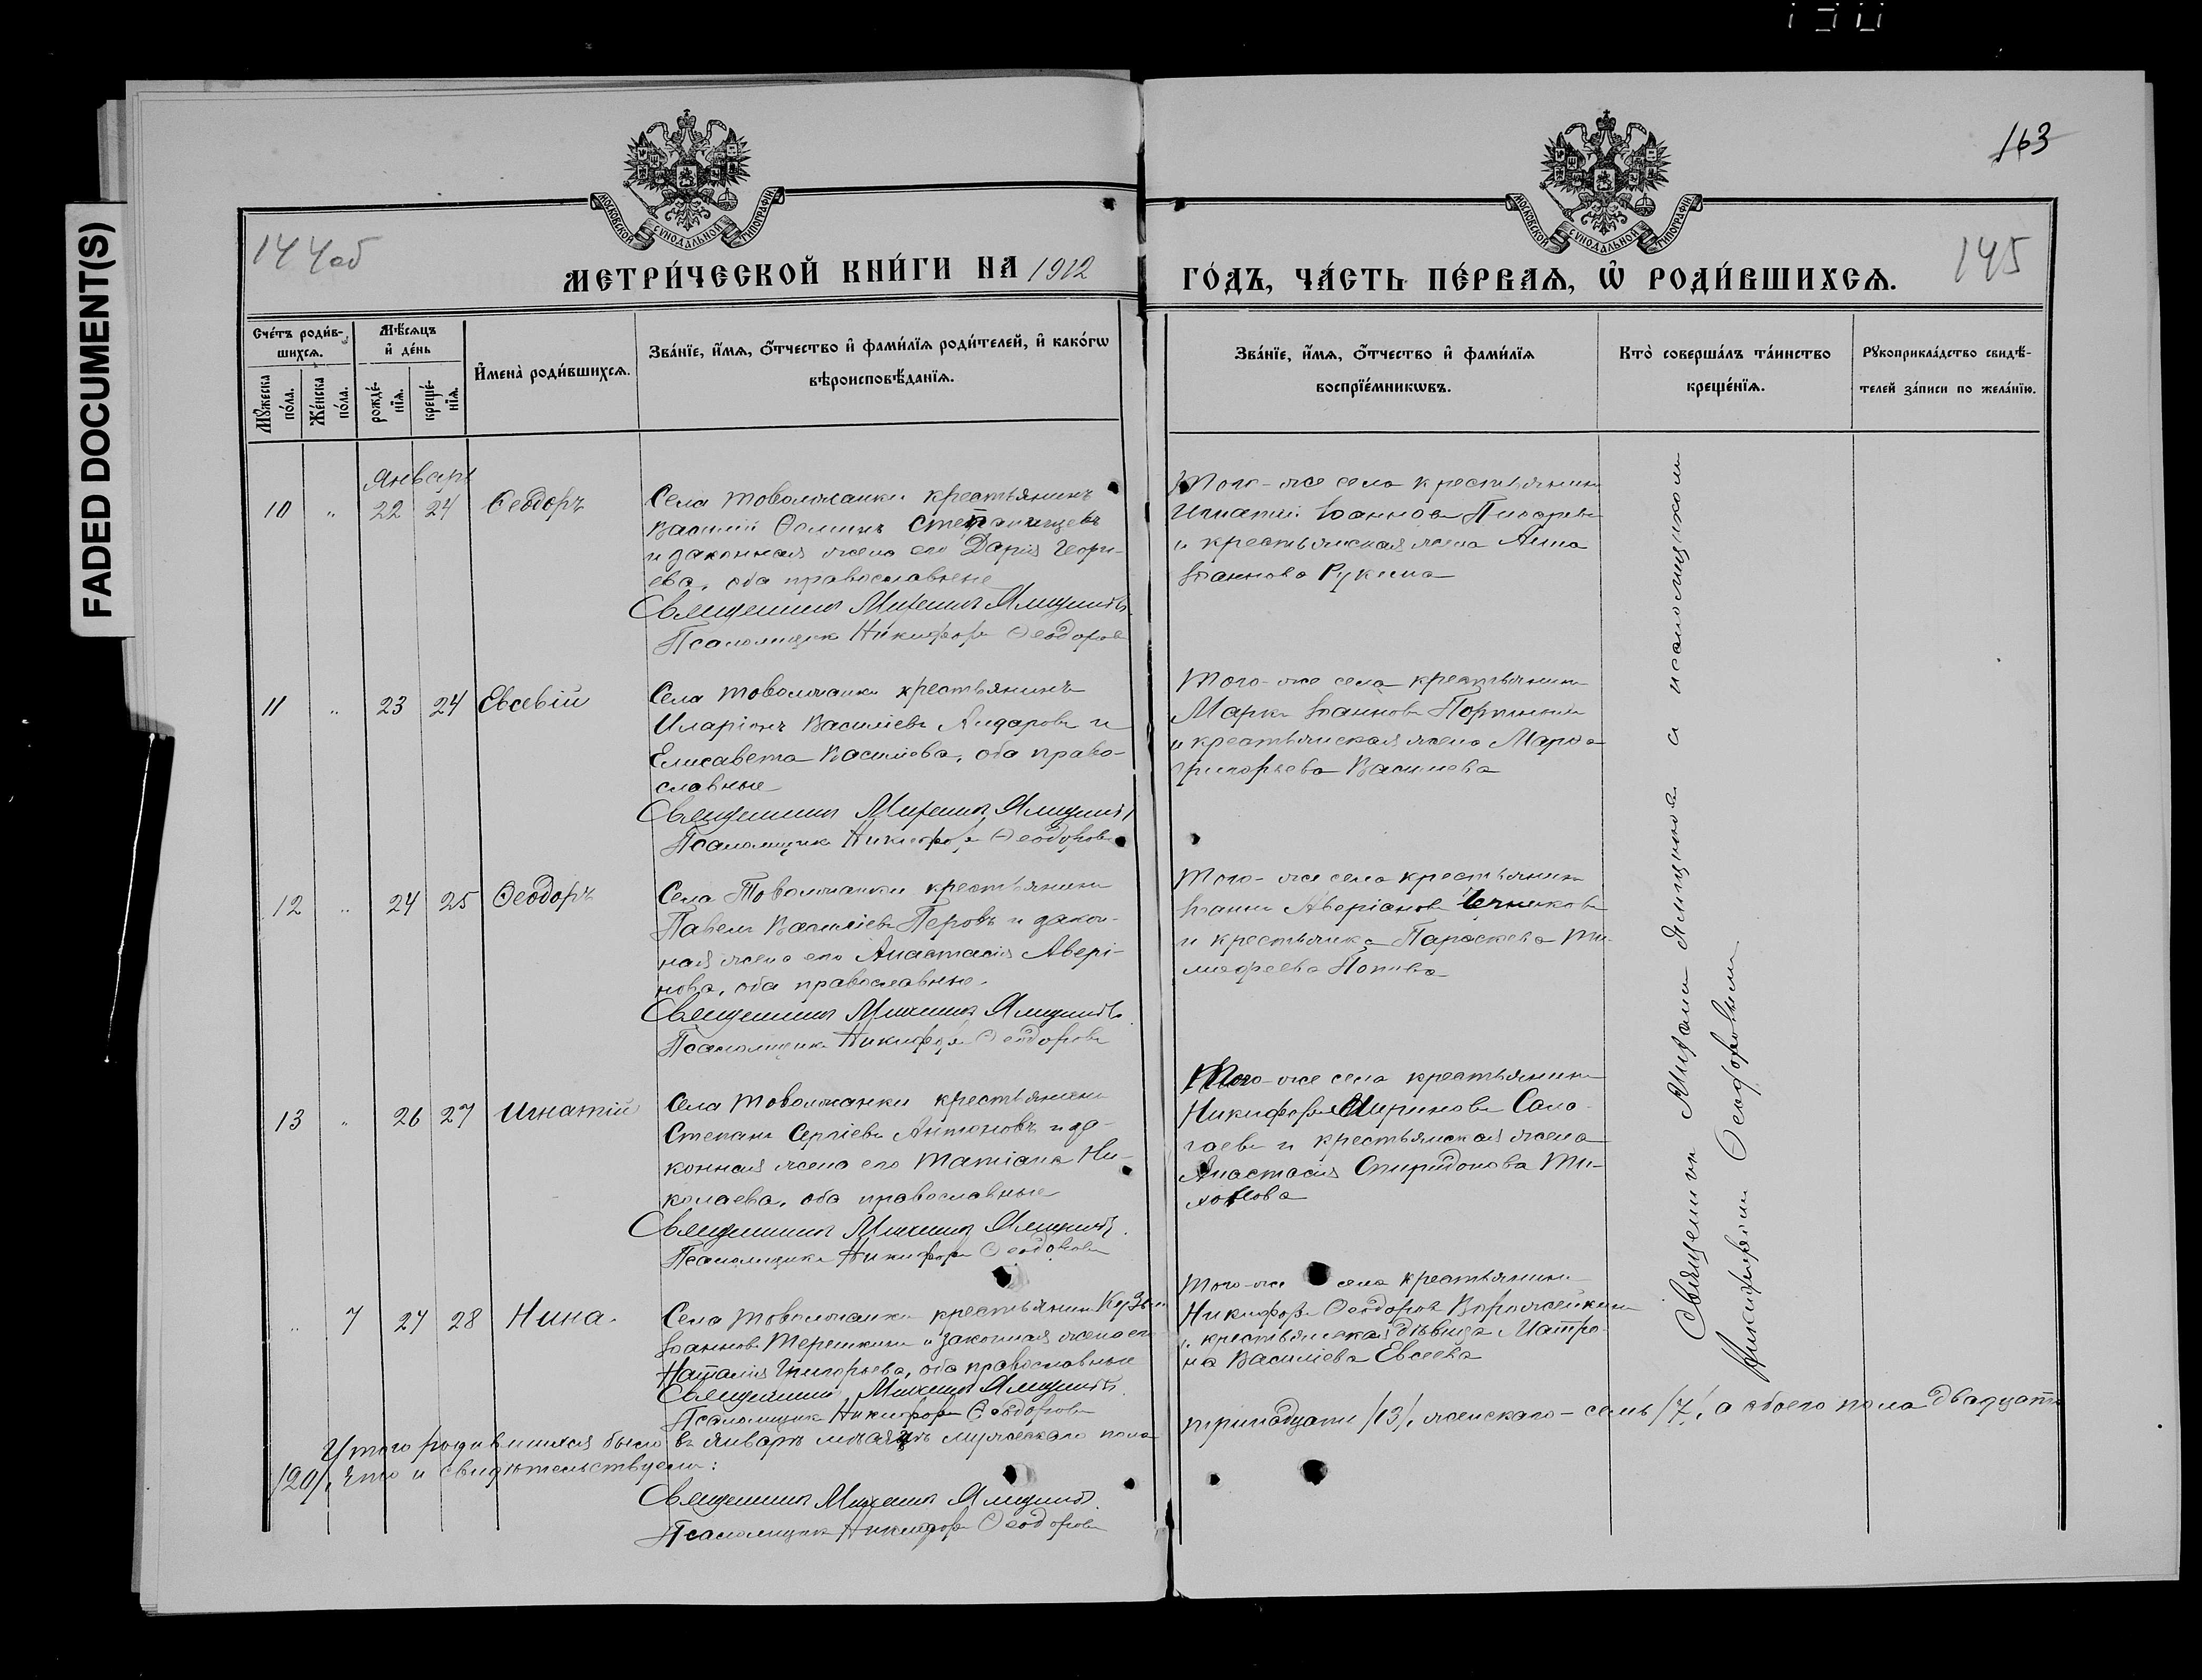 FADED DOCUMENT(S)
163
144об
145
МОСКОВСКОЙ СѴНОДАЛЬНОЙ ТИПОГРАФІИ
МОСКОВСКОЙ СѴНОДАЛЬНОЙ ТИПОГРАФІИ
МЕТРИ́ЧЕСКОЙ КНИ́ГИ НА 1912
ГО́ДЪ, ЧА́СТЬ ПЕ́РВАѦ, Ѡ҆ РОДИ́ВШИХСѦ.
Сче́тъ роди́в-
шихсѧ.
Мꙋ́жеска по́ла.
Же́нска по́ла.
Мѣ́сѧцъ
и҆ де́нь
рожде́-
нїѧ.
креще́-
нїѧ.
И҆мена̀ роди́вшихсѧ.
Зва́нїе, и҆́мѧ, ѻ҆́тчество и҆ фами́лїѧ роди́телей, и҆ како́гѡ
вѣроисповѣ́данїѧ.
Зва́нїе, и҆́мѧ, ѻ҆́тчество и҆ фами́лїѧ
воспрїе́мникѡвъ.
Кто̀ соверша́лъ та́инство
креще́нїѧ.
Рꙋкоприкла́дство свидѣ́-
телей за́писи по жела́нїю.
Январь
10 " 22 24 Ѳеодоръ
Села Товолжанки крестьянинъ
Василій Ѳоминъ
и законная жена его Дарія Георгі-
ева, оба православные
Священникъ Михаилъ Ямщиковъ
Псаломщикъ Никифоръ Ѳеодоровъ
Того-же села крестьянинъ
Игнатій Іоанновъ Писаревъ
и крестьянская жена Анна
Іоаннова Рукина
11 " 23 24 Евсевій
Села Товолжанки крестьянинъ
Иларіонъ Василіевъ Айдаровъ и
Елисавета Василіева, оба право-
славные
Священникъ Михаилъ Ямщиковъ
Псаломщикъ Никифоръ Ѳеодоровъ
Того-же села крестьянинъ
Маркъ Іоанновъ
и крестьянская жена Марѳа
Григорьева Василиева
12 " 24 25 Ѳеодоръ
Села Товолжанки крестьянинъ
Павелъ Василіевъ Перовъ и закон-
ная жена его Анастасія Авері-
нова, оба православные.
Священникъ Михаилъ Ямщиковъ
Псаломщикъ Никифоръ Ѳеодоровъ
Того-же села крестьянинъ
Іоаннъ Аверіановъ
и крестьянка Параскева Ти-
моѳеева Попова
13 " 26 27 Игнатій
Села Товолжанки крестьянинъ
Степанъ Сергіевъ Антоновъ и за-
конная жена его Татіана Ни-
колаева, оба православные
Священникъ Михаилъ Ямщиковъ.
Псаломщикъ Никифоръ Ѳеодоровъ
Того-же села крестьянинъ
Никифоръ Сало-
гаевъ и крестьянская жена
Анастасія Спиридонова Ти-
хонова
" 7 27 28 Нина.
Села Товолжанки крестьянинъ
Іоанновъ Терешкинъ и законная жена его
Наталія Григорьева, оба православные
Священникъ Михаилъ Ямщиковъ.
Псаломщикъ Никифоръ Ѳеодоровъ
Того-же села крестьянинъ
Никифоръ Ѳеодоровъ Ворожейкинъ
и крестьянская дѣвица Матро-
на Василіева Евсеева
Священникъ Михаилъ Ямщиковъ съ псаломщикомъ
Никифоромъ Ѳеодоровымъ
Итого родившихся было въ январѣ мѣсяцѣ мужескаго пола
тринадцать /13/, женскаго - семь /7/, а обоего пола двадцать
/20/, что и свидѣтельствуемъ:
Священникъ Михаилъ Ямщиковъ.
Псаломщикъ Никифоръ Ѳеодоровъ